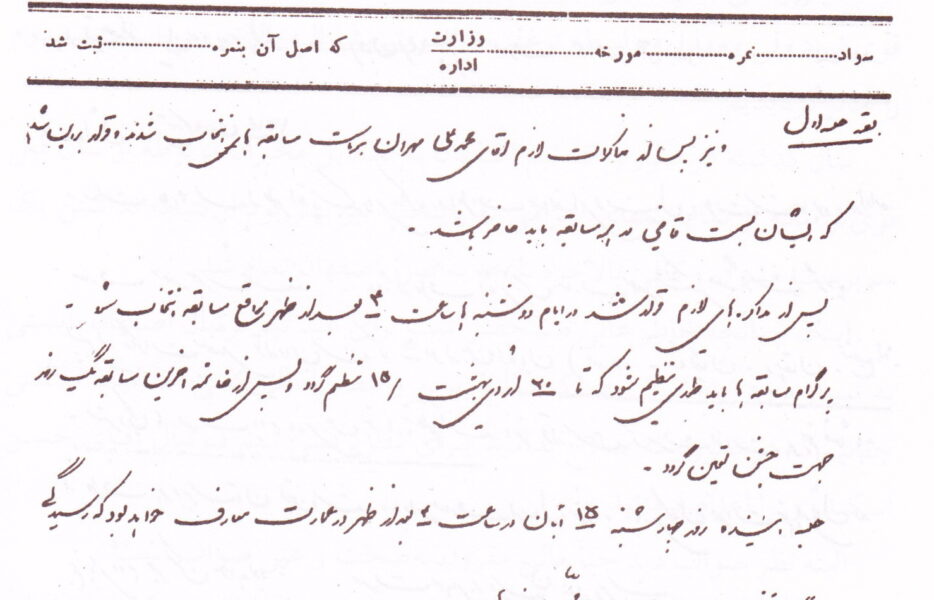 سواد............نمره............مورخه............وزارت............که اصل آن بنمره............ثبت شد
اداره
بقیه جلسه اول
و نیز پس از مذاکرات لازم آقای محمدعلی مهران بریاست مسابقه ها انتخاب شدند و قرار براین شد
که ایشان بسمت قاضی در هر مسابقه باید حاضر باشند .
پس از مذاکره های لازم قرار شد در ایام دوشنبه ها ساعت ۳ بعد از ظهر مواقع مسابقه انتخاب شود .
پرگرام مسابقه ها باید طوری تنظیم شود که تا اردیبهشت ۱۵ منظم گردد و پس از خاتمه آخرین مسابقه یک روز
جهت جشن تعیین گردد .
جلسه آینده روز چهارشنبه ۱۵ آبان در ساعت ۴ بعد از ظهر در عمارت معارف خواهد بود که رسیدگی